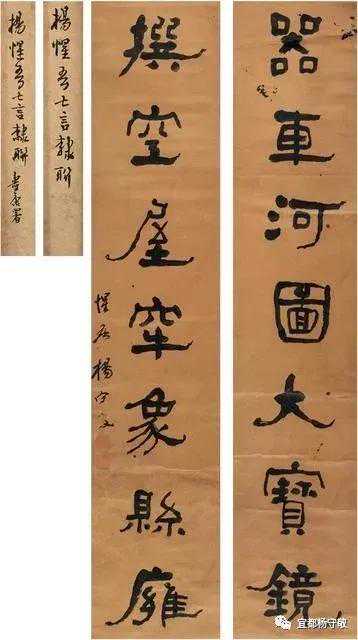 器車河圖大寶鏡
撰空屋窂象縣廱
惺吾楊守敬
楊惺吾七言隸聯
楊惺吾七言隸聯
署
宜都杨守敬